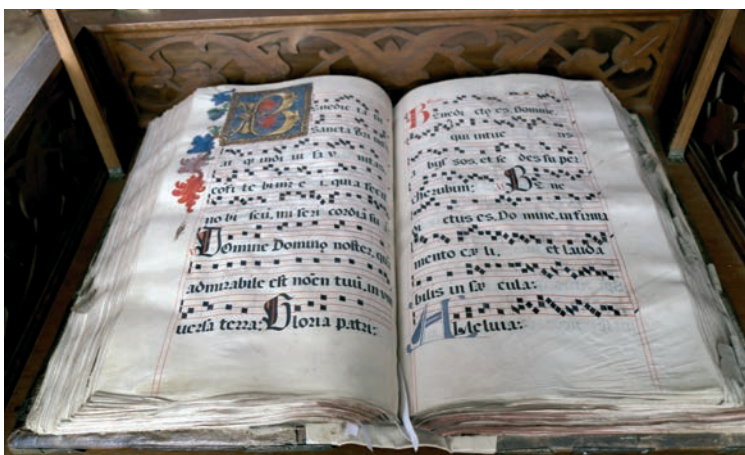 Benedic ta sit
Sancta Tri
at indi ui sa vnitas
cofi te bimr e i, quia fecit
no bi scũ, mi seri cordiã su
Domine Dominꝯ noster, qu
admirabile est nõen tuũ, in vni
uersa terra: Gloria patri:
Benedi ctꝯ es, Domine,
qui intue ris
bys sos, et se des su per
cherubim: Be ne
ctus es, Do mine, in firma
mento cæ li, et lauda
bilis in sæ cula:
Alleluia: